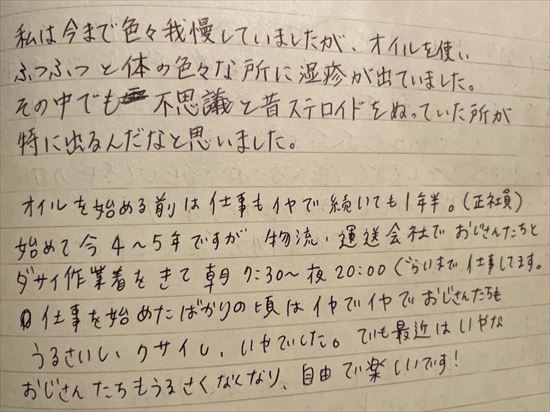 私は今まで色々我慢していましたが、オイルを使い
ふつふつと体の色々な所に湿疹が出ていました。
その中でも不思議と昔ステロイドをぬっていた所が
特に出るんだなと思いました。
オイルを始める前は仕事もイヤで続いても1年半。(正社員)
始めて今4〜5年ですが物流、運送会社でおじさんたちと
ダサイ作業着をきて朝7:30〜夜20:00ぐらいまで仕事してます。
仕事を始めたばかりの頃はイヤでイヤでおじさんたちも
うるさいし、クサイし、いやでした。でも最近はいやな
おじさんたちもうるさくなくなり、自由で楽しいです!